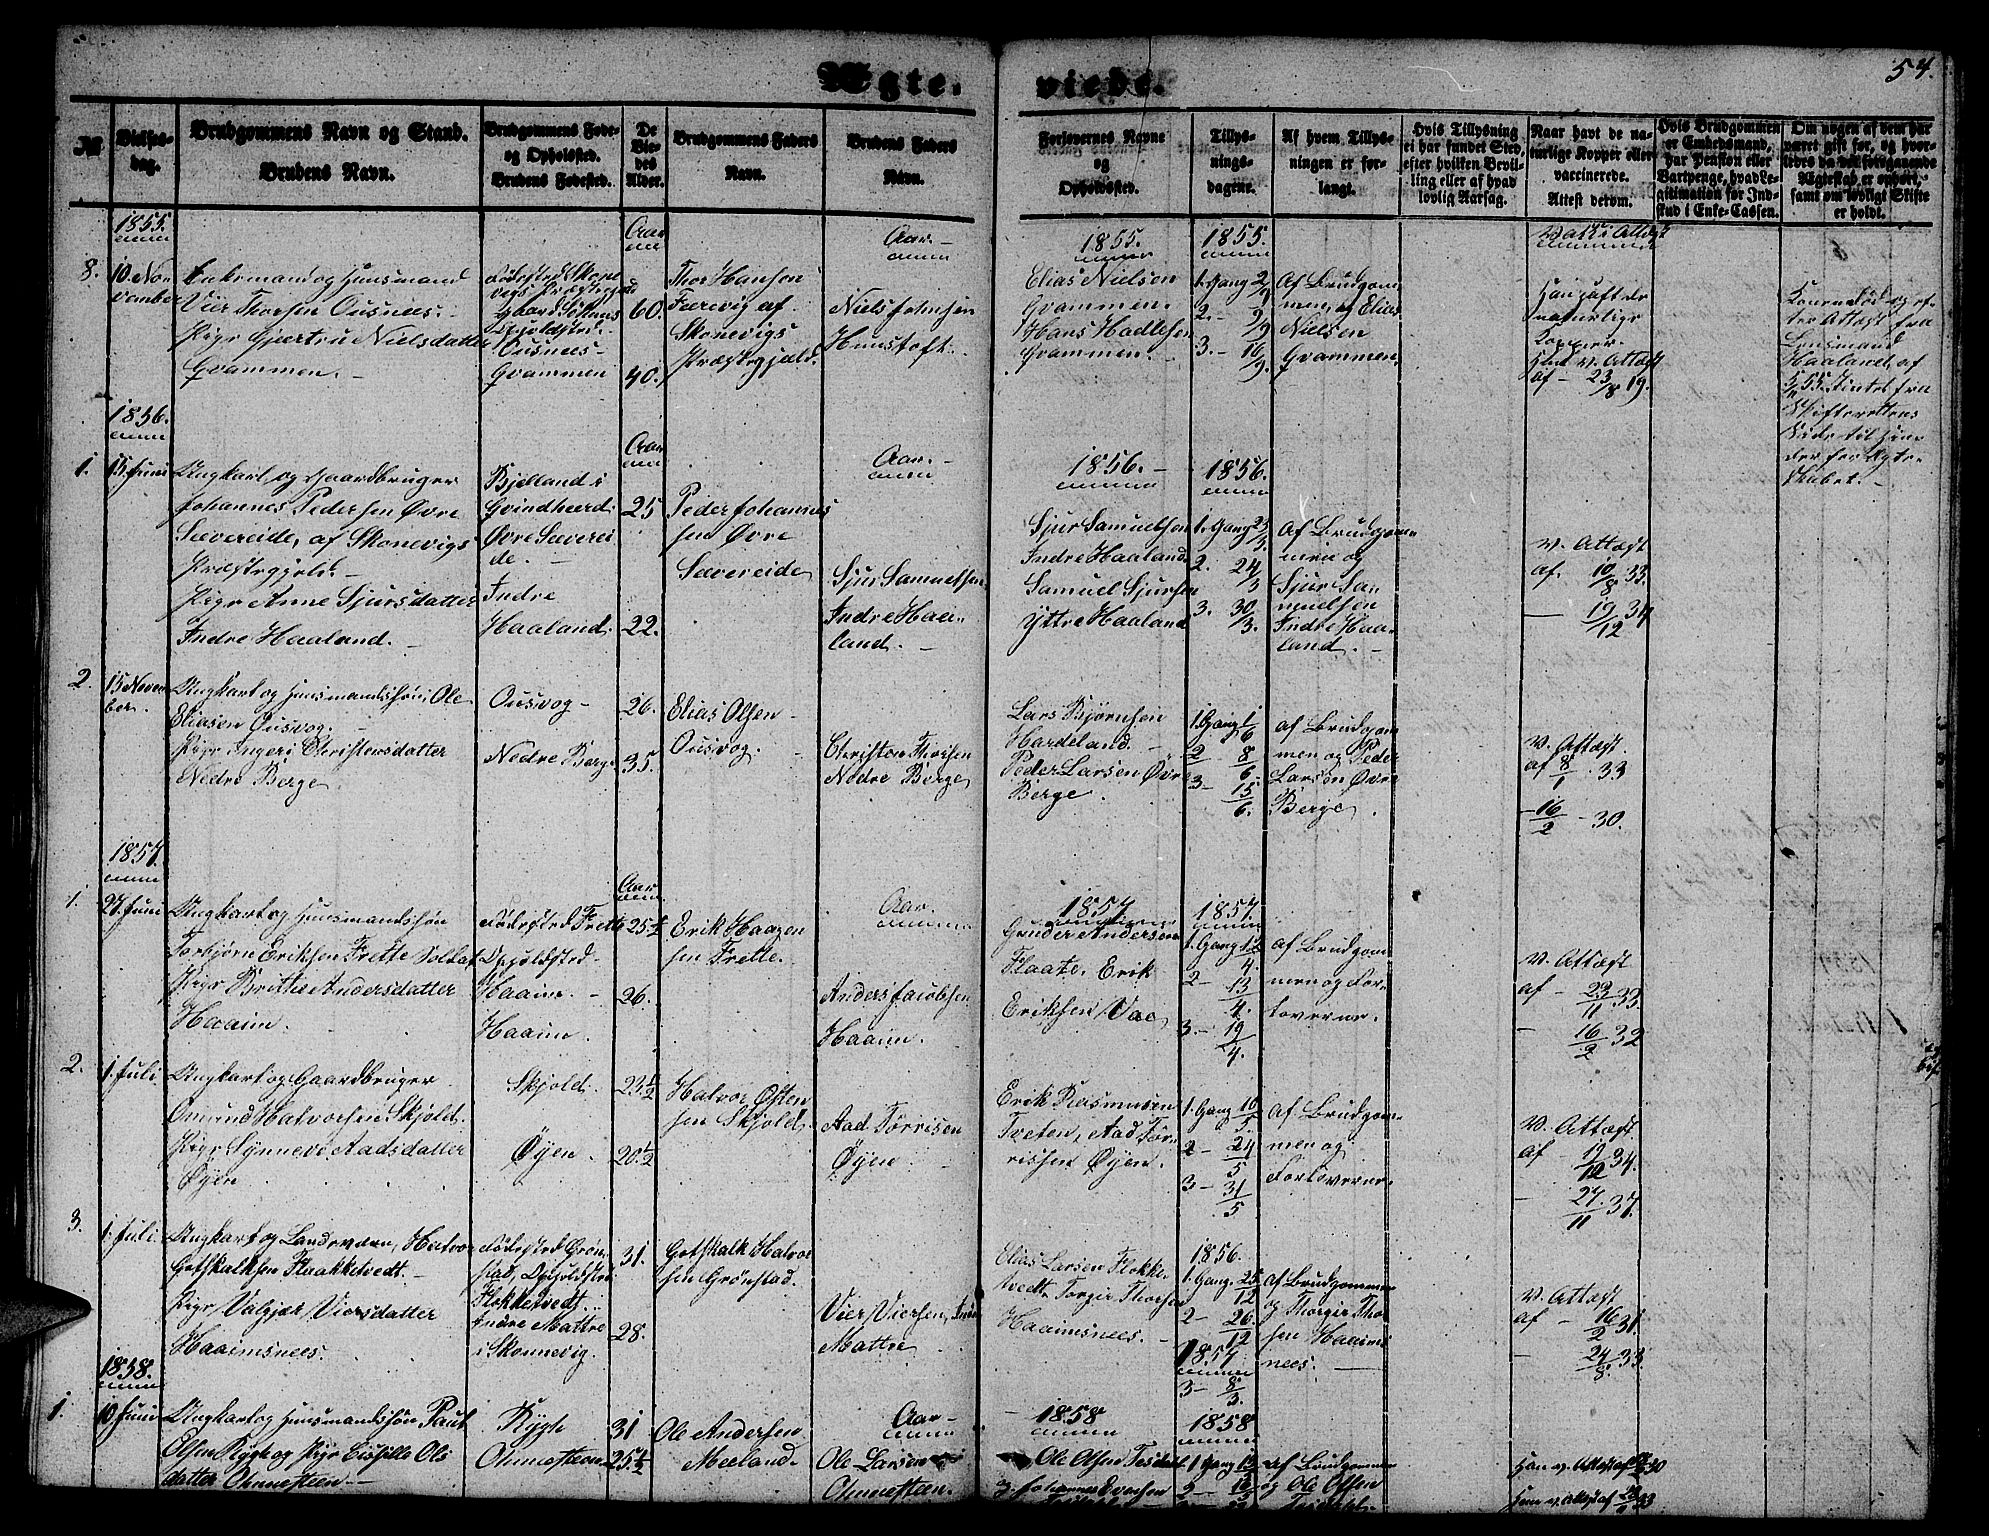 Ægte-
viede.
54.
№
Vielses-
dag.
Brudgommens Navn og Stand.
Brudens Navn.
Brudgommens Føde-
og Opholdsted.
Brudens Fødested.
De
Vie-
des
Alder.
Brudgommens Faders
Navn.
Brudens Faders
Navn.
Forlovernes Navne
og
Opholdssted.
Tillys-
nings-
dagene.
Af hvem Tillys-
ningen er for-
langt.
Hvis Tillysning
ei har fundet Sted,
efter hvilken Bevil-
ling eller af hvad
lovlig Aarsag.
Naar havt de na-
turlige Kopper eller
vaccinerede.
Attest derom.
Hvis Brudgommen
er Embedsmand,
har Pension eller
Vartpenge, hvad Le-
gitimation for Ind-
skud i Enke-Cassen.
Om nogen af dem har
været gift før, og hvor-
ledes da det foregaaende
Ægteskab er ophørt,
samt om lovligt Skifte
er holdt.
1855.
8.
10. No-
vember
Enkemand og Huusmand
Vier Thorsen Ousnees.
Pige Gjertru Nielsdatter
Qvammen.
Fødested Skone
vigs Præstegjeld
Opholdsted.
Ousnees
Qvammen
Aar
60.
40.
Thor Hansen
af
Skonevigs
Præstegjeld.
Aar.
Niels Johnsen
Huustoft.
1855.
Elias Nielsen
Qvammen.
Hans Hadlesen
Qvammen.
1855.
1. Gang 2/9
2. - 9/9
3. - 16/9.
Af Brudgom
men, og Elias
Nielsen
Qvammen
Han havt de
naturlige
Kopper.
Hun v. Attest
af - 23/8 19.
Konen død og ef-
ter Attest fra
Lensmand
Haaland, af
55. Intet fra
Skifterettens
Side til Hin
der for Ægte-
skabet.
1856.
1.
15. Juni
Ungkarl, og Gaardbruger
Johannes Pedersen Øvre
Sævereide, af Skonevigs
Præstegjeld.
Pige Anne Sjursdatter
Indre Haaland.
Bjelland i
Qvindheerd.
Øvre Sæverei
de.
Indre
Haaland.
Aar
25
22.
Peder Johannes
sen Øvre
Sævereide
Aar.
Sjur Samuelsen
Indre Haa-
land.
1856.
Sjur Samuelsen
Indre Haaland
Samuel Sjursen
Yttre Haaland
1856.
1. Gang 23/3.
2. 24/3
3. 30/3.
Af Brudgom-
men og
Sjur Sa-
muelsen
Indre Haa-
land.
v. Attest
af. 10/8 33.
- 19/12 34
2.
15 Novem
ber.
Ungkarl og Huusmandssøn, Ole
Eliasen Ousvog.
Pige Ingeri Christensdatter
Nedre Berge
Ousvog
Nedre Berge
26.
35.
Elias Olsen
Ousvog.
Christen Thorsen
Nedre Berge
Lars Bjørnsen
Hardeland.
Peder Larsen Øvre
Berge.
1. Gang 1/6
2 8/6
3- 15/6.
af Brudgom
men og Peder
Larsen Øvre
Berge
v. Attest.
af 8/1 33
- 16/2 - 30.
1857.
1.
27. Juni
Ungkarl og Huusmandssøn
Torbjørn Eriksen Frette Soldat
Pige Brithe Andersdatter
Haaim.
Fødested Frette
Opholdsted
Haaim.
Haaim.
Aar
25½
26.
Erik Haagen
sen Frette.
Aar.
Anders Jacobsen
Haaim.
1857
Gunder Andersen
Flaate. Erik
Eriksen Vae
1857.
1. Gang 12/4.
2 - 13/4.
3 - 19/4.
af Brudgom
men og For-
loverne.
v. Attest
af - 23/11 33.
- 16/2 32
2.
1. Juli
Ungkarl og Gaardbruger
Omund Halvorsen Skjold.
Pige Synneve Aadsdatter
Øyen
Skjold.
Øyen.
23½
20½
Halvor Østen
sen Skjold.
Aad Torrisen
Øyen.
Erik Rasmusen
Tveten, Aad Tor-
rissen Øyen.
1. Gang 10/5.
2 - 24/5
3 - 31/5
af Brudgom-
men og
Forloverne.
v. Attest.
af - 12/12 34.
- 27/11 37.
3.
1. Juli.
Ungkarl og Landeværn, Halvor
Gotskalksen Flaakketvedt.
Pige Valgjer Viersdatter
Haaimsnees.
Fødested Grøn-
stad, Opholdsted
Flokketvedt.
Indre Mattre
i Skonevig.
31
28.
Gotskalk Halvor
sen Grønstad.
Vier Viersen, Indre
Mattre
Elias Larsen Flokke-
tvedt. Torgir Thorsen
Haaimsnees.
1856.
1. Gang. 25/12
2 - 26/12
1857
3 - 8/3.
af Brudgommen
og Thorgir Thor
sen Haaims
nees.
v. Attest
af - 16/2 31.
- 24/8. 33.
1858.
1.
10. Juni
Ungkarl og Huusmandssøn Paul
Olsen Rygh og Pige Ols
datter Ohnnesteen
Rygh
Ohnnesteen
31
25½
Ole Andersen
Meeland.
Aar
Ole Larsen
Ohnnesteen.
1858
Ole Olsen
Johannes
1858
1 Gang
2 -
af Brudgommen
og Ole Olsen
Han v. Attest af 30
Hun v. Attest af 33